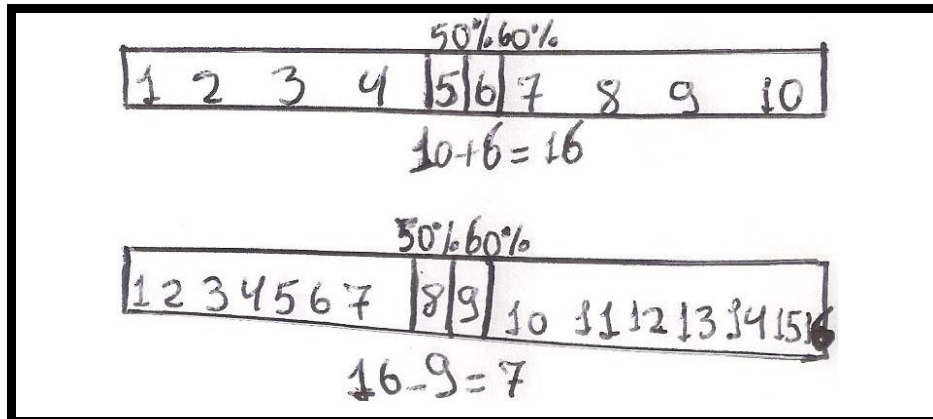 50% 60%
1 2 3 4 5 6 7 8 9 10
10+6=16
50% 60%
1 2 3 4 5 6 7 8 9 10 11 12 13 14 15 16
16-9=7